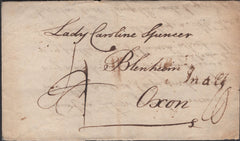 Lady Caroline Spencer
Blenheim
Oxon